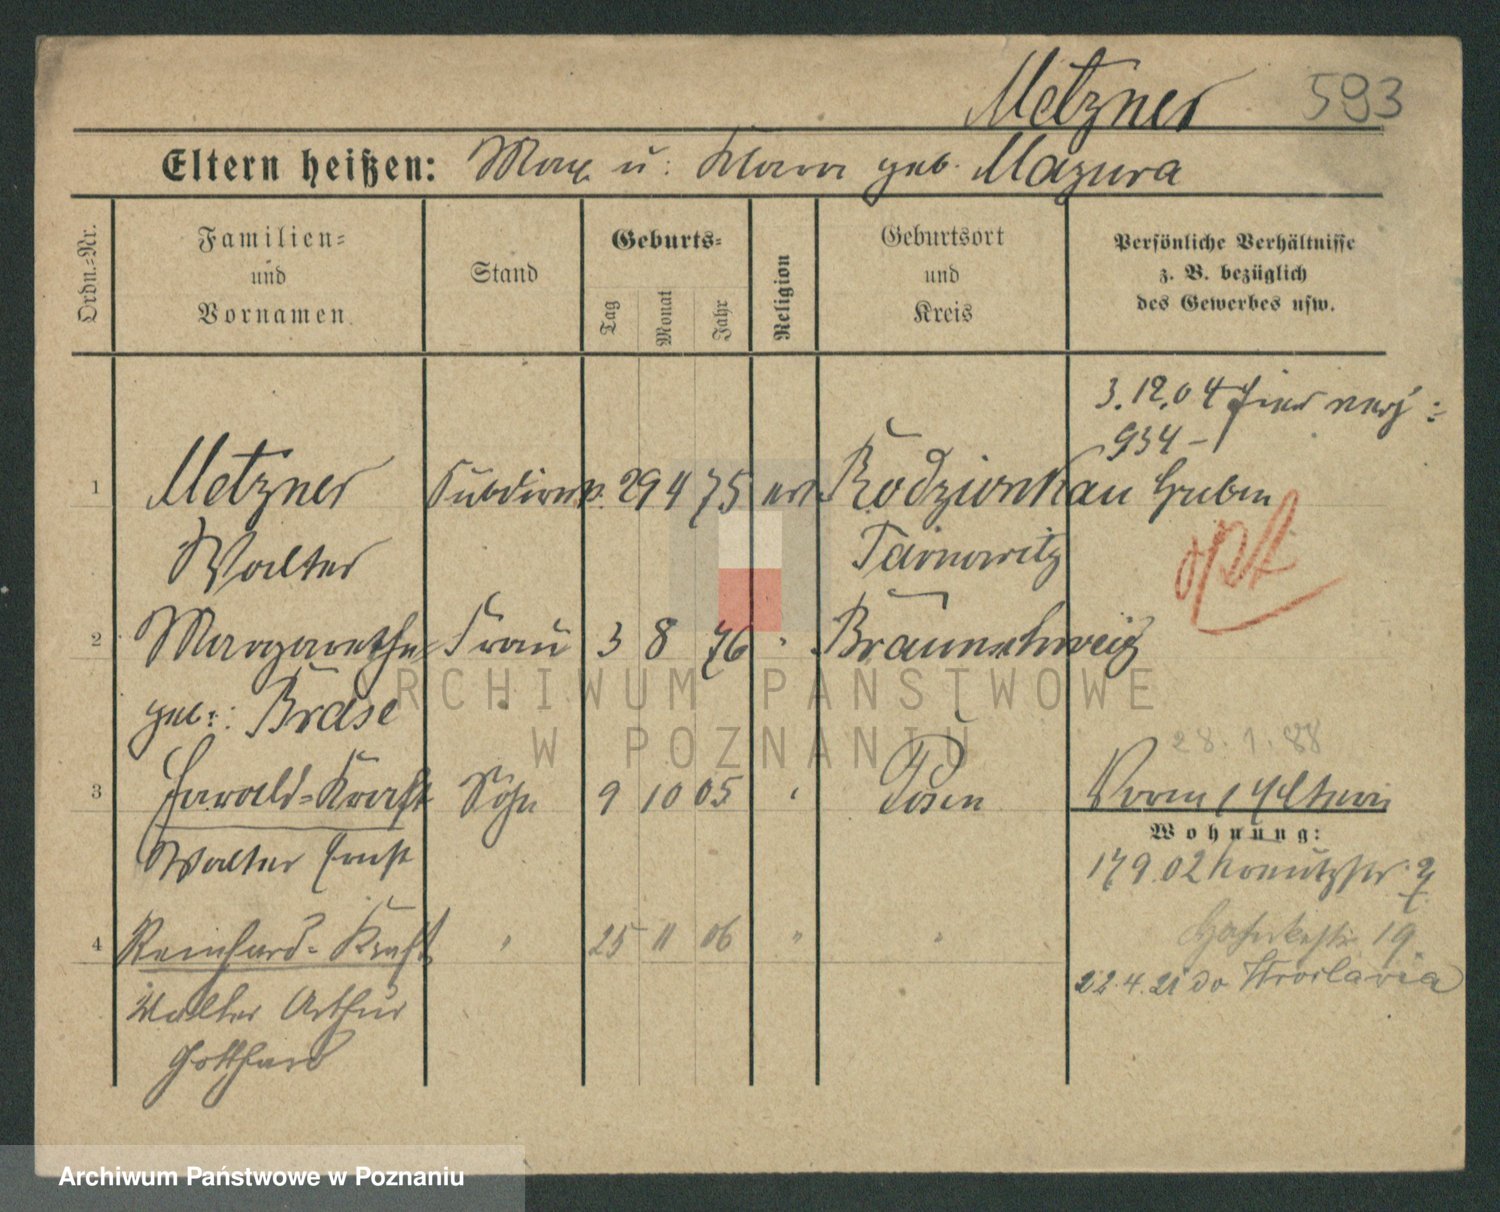 Metzner 593
Eltern heißen: Max u. Klara geb. Mazura
Ordn.=Nr.
Familien=
und
Vornamen
Stand
Geburts=
Tag
Monat
Jahr
Religion
Geburtsort
und
Kreis
Persönliche Verhältnisse
z. B. bezüglich
des Gewerbes usw.
3.12.04
934
1 Metzner 29 4 75 Rodzionkau Guben
Walter Tarnowitz
opt
2 Margarethe Frau 3 8 76 " Braunschweig
geb. Brase
28.1.88
3 Harald=Kraft Sohn 9 10 05 " Posen
Wohnung:
Walter Ernst 17 9.02
4 Reinhard=Kraft " 25 11 06 " " 19
22.4.21 do Wroclawia
Walter Arthur
Gotthard
ARCHIWUM PAŃSTWOWE
W POZNANIU
Archiwum Państwowe w Poznaniu